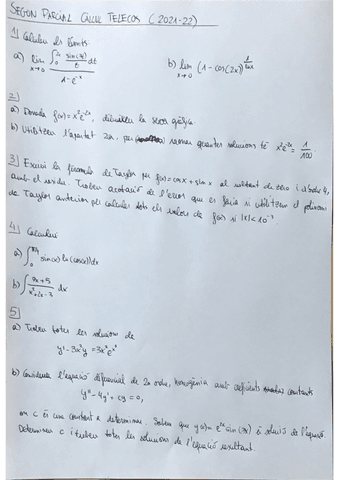 SEGON PARCIAL CÀLCUL TELECOS (2021-22)
1) Calculeu els límits
a) lim x→0 ∫₀^{2x} sin(t)/t dt / 1-e^{-x}
b) lim x→0 (1-cos(2x))^{1/lnx}
2)
a) Donada f(x)=x²e^{-2x}, dibuixeu la seva gràfica.
b) Utilitzeu l'apartat 2a, per raonar quantes solucions té x²e^{-2x} = 1/100
3) Escriviu la fórmula de Taylor per f(x)=cosx+sinx al voltant de zero i d'ordre 4,
amb el residu. Trobeu acotació de l'error que es faria si utilitzem el polinomi
de Taylor anterior per calcular tots els valors de f(x) si |x|<10^{-3}
4) Calculeu
a) ∫₀ sin(x) ln(cos(x)) dx
b) ∫ (9x+5)/(x²+2x-3) dx
5)
a) Trobeu totes les solucions de
y'-3x²y=3x²e^{x³}
b) Considereu l'equació diferencial de 2n ordre, homogènia amb coeficients constants
y''-4y'+cy=0,
on c és una constant a determinar. Sabem que y(x)=e^{2x}sin(3x) és solució de l'equació.
Determineu c i trobeu totes les solucions de l'equació resultant.